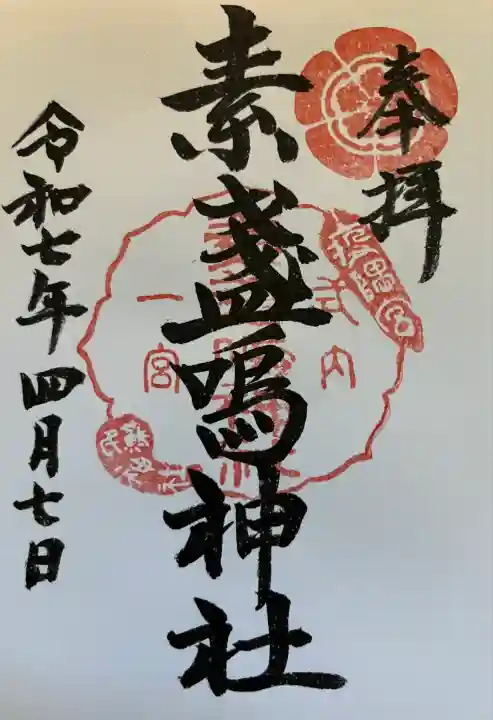 奉拝
素盞嗚神社
令和七年四月七日
式内
一宮